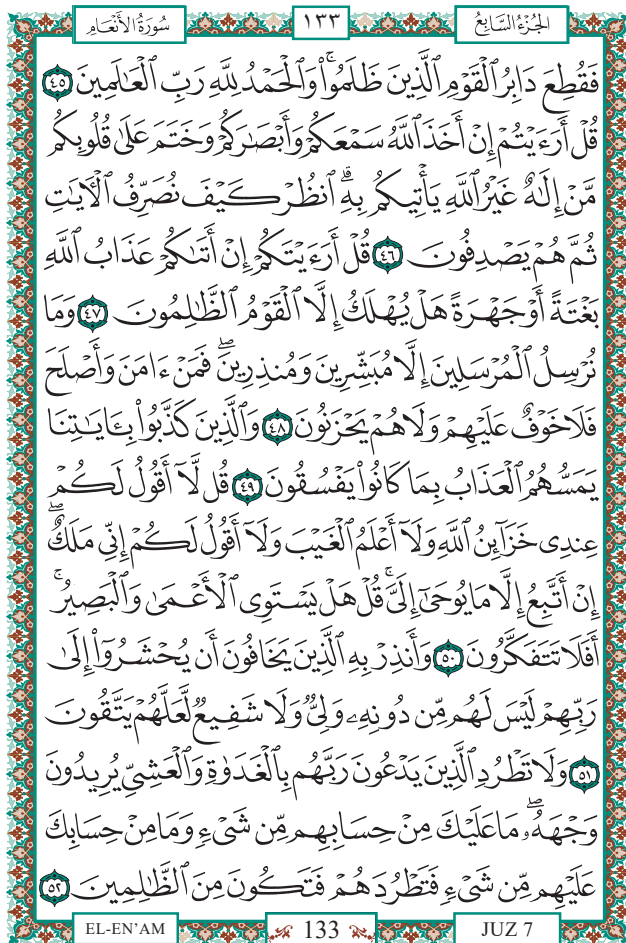 سُورَةُ الأَنْعَامِ ١٣٣ الجُزْءُ السَّابِعُ
فَقُطِعَ دَابِرُ ٱلْقَوْمِ ٱلَّذِينَ ظَلَمُوا۟ۚ وَٱلْحَمْدُ لِلَّهِ رَبِّ ٱلْعَٰلَمِينَ ٤٥
قُلْ أَرَءَيْتُمْ إِنْ أَخَذَ ٱللَّهُ سَمْعَكُمْ وَأَبْصَٰرَكُمْ وَخَتَمَ عَلَىٰ قُلُوبِكُم
مَّنْ إِلَٰهٌ غَيْرُ ٱللَّهِ يَأْتِيكُم بِهِۗ ٱنظُرْ كَيْفَ نُصَرِّفُ ٱلْءَايَٰتِ
ثُمَّ هُمْ يَصْدِفُونَ ٤٦ قُلْ أَرَءَيْتَكُمْ إِنْ أَتَىٰكُمْ عَذَابُ ٱللَّهِ
بَغْتَةً أَوْ جَهْرَةً هَلْ يُهْلَكُ إِلَّا ٱلْقَوْمُ ٱلظَّٰلِمُونَ ٤٧ وَمَا
نُرْسِلُ ٱلْمُرْسَلِينَ إِلَّا مُبَشِّرِينَ وَمُنذِرِينَۖ فَمَنْ ءَامَنَ وَأَصْلَحَ
فَلَا خَوْفٌ عَلَيْهِمْ وَلَا هُمْ يَحْزَنُونَ ٤٨ وَٱلَّذِينَ كَذَّبُوا۟ بِـَٔايَٰتِنَا
يَمَسُّهُمُ ٱلْعَذَابُ بِمَا كَانُوا۟ يَفْسُقُونَ ٤٩ قُل لَّآ أَقُولُ لَكُمْ
عِندِى خَزَآئِنُ ٱللَّهِ وَلَآ أَعْلَمُ ٱلْغَيْبَ وَلَآ أَقُولُ لَكُمْ إِنِّى مَلَكٌۖ
إِنْ أَتَّبِعُ إِلَّا مَا يُوحَىٰٓ إِلَىَّۚ قُلْ هَلْ يَسْتَوِى ٱلْأَعْمَىٰ وَٱلْبَصِيرُۚ
أَفَلَا تَتَفَكَّرُونَ ٥٠ وَأَنذِرْ بِهِ ٱلَّذِينَ يَخَافُونَ أَن يُحْشَرُوٓا۟ إِلَىٰ
رَبِّهِمْ لَيْسَ لَهُم مِّن دُونِهِۦ وَلِىٌّ وَلَا شَفِيعٌ لَّعَلَّهُمْ يَتَّقُونَ
٥١ وَلَا تَطْرُدِ ٱلَّذِينَ يَدْعُونَ رَبَّهُم بِٱلْغَدَوٰةِ وَٱلْعَشِىِّ يُرِيدُونَ
وَجْهَهُۥۖ مَا عَلَيْكَ مِنْ حِسَابِهِم مِّن شَىْءٍ وَمَا مِنْ حِسَابِكَ
عَلَيْهِم مِّن شَىْءٍ فَتَطْرُدَهُمْ فَتَكُونَ مِنَ ٱلظَّٰلِمِينَ ٥٢
EL-EN'AM 133 JUZ 7